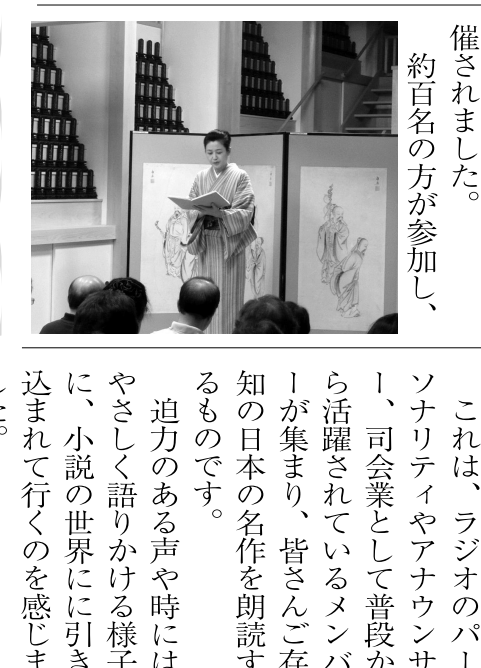 催されました。
約百名の方が参加し、
これは、ラジオのパー
ソナリティやアナウンサ
ー、司会業として普段か
ら活躍されているメンバ
ーが集まり、皆さんご存
知の日本の名作を朗読す
るものです。
迫力のある声や時には
やさしく語りかける様子
に、小説の世界にに引き
込まれて行くのを感じま
した。